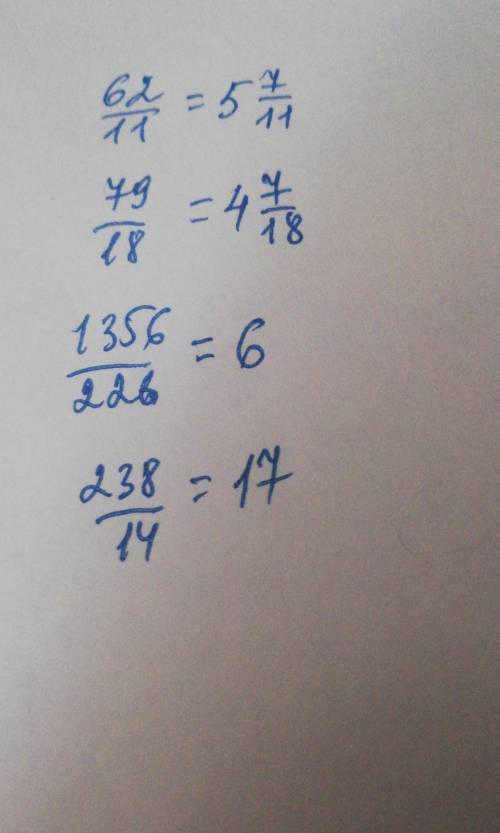 62/11 = 5 7/11
79/18 = 4 7/18
1356/226 = 6
238/14 = 17